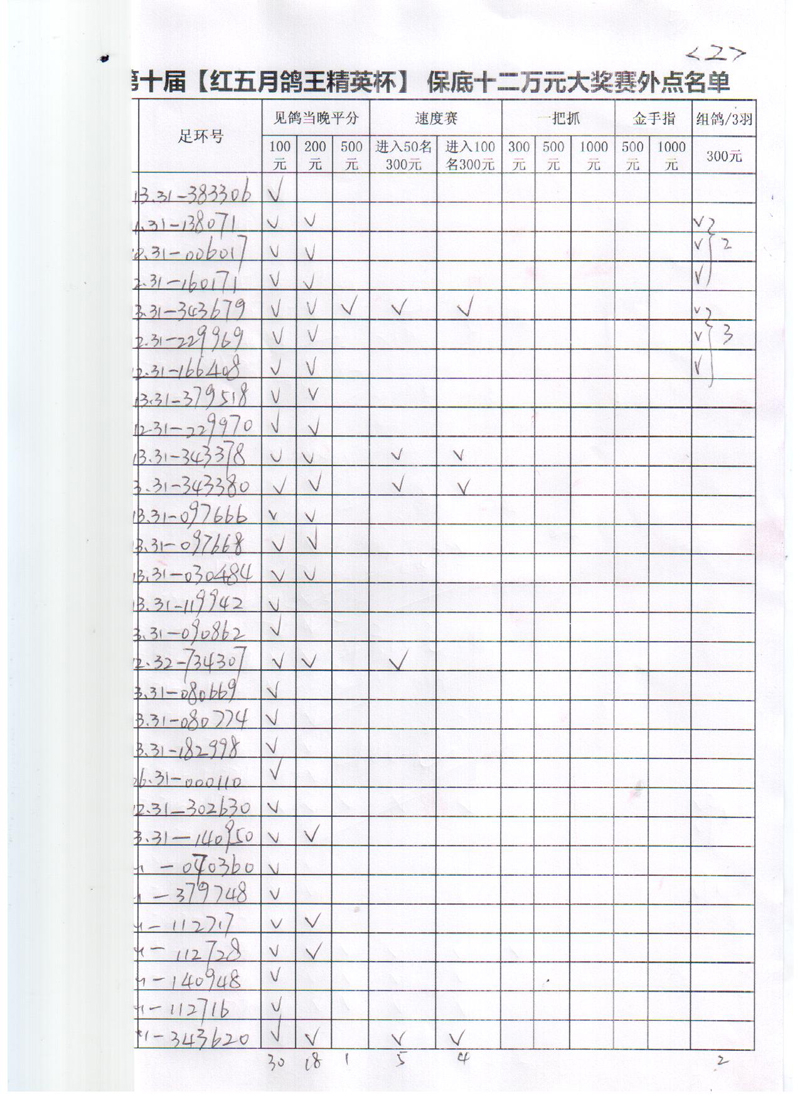 <2>
第十届【红五月鸽王精英杯】 保底十二万元大奖赛外点名单
足环号 见鸽当晚平分 速度赛 一把抓 金手指 组鸽/3羽
100元 200元 500元 进入50名300元 进入100名300元 300元 500元 1000元 500元 1000元 300元
13.31-383306 √
.31-138071 √ √ √
.31-006017 √ √ √ 2
2.31-160171 √ √ √
3.31-343679 √ √ √ √ √ √
2.31-229969 √ √ √ 3
12.31-166408 √ √ √
13.31-379518 √ √
12.31-229970 √ √
13.31-343378 √ √ √ √
3.31-343380 √ √ √ √
13.31-097666 √ √
13.31-097668 √ √
13.31-030484 √ √
13.31-119942 √
3.31-090862 √
12.32-734307 √ √ √
3.31-080669 √
13.31-080774 √
13.31-182998 √
06.31-000110 √
12.31-302630 √
3.31-140950 √ √
-040360 √
-379748 √
-112717 √ √
-112728 √ √
-140948 √
-112716 √
-343620 √ √ √ √
30 18 1 5 4 2